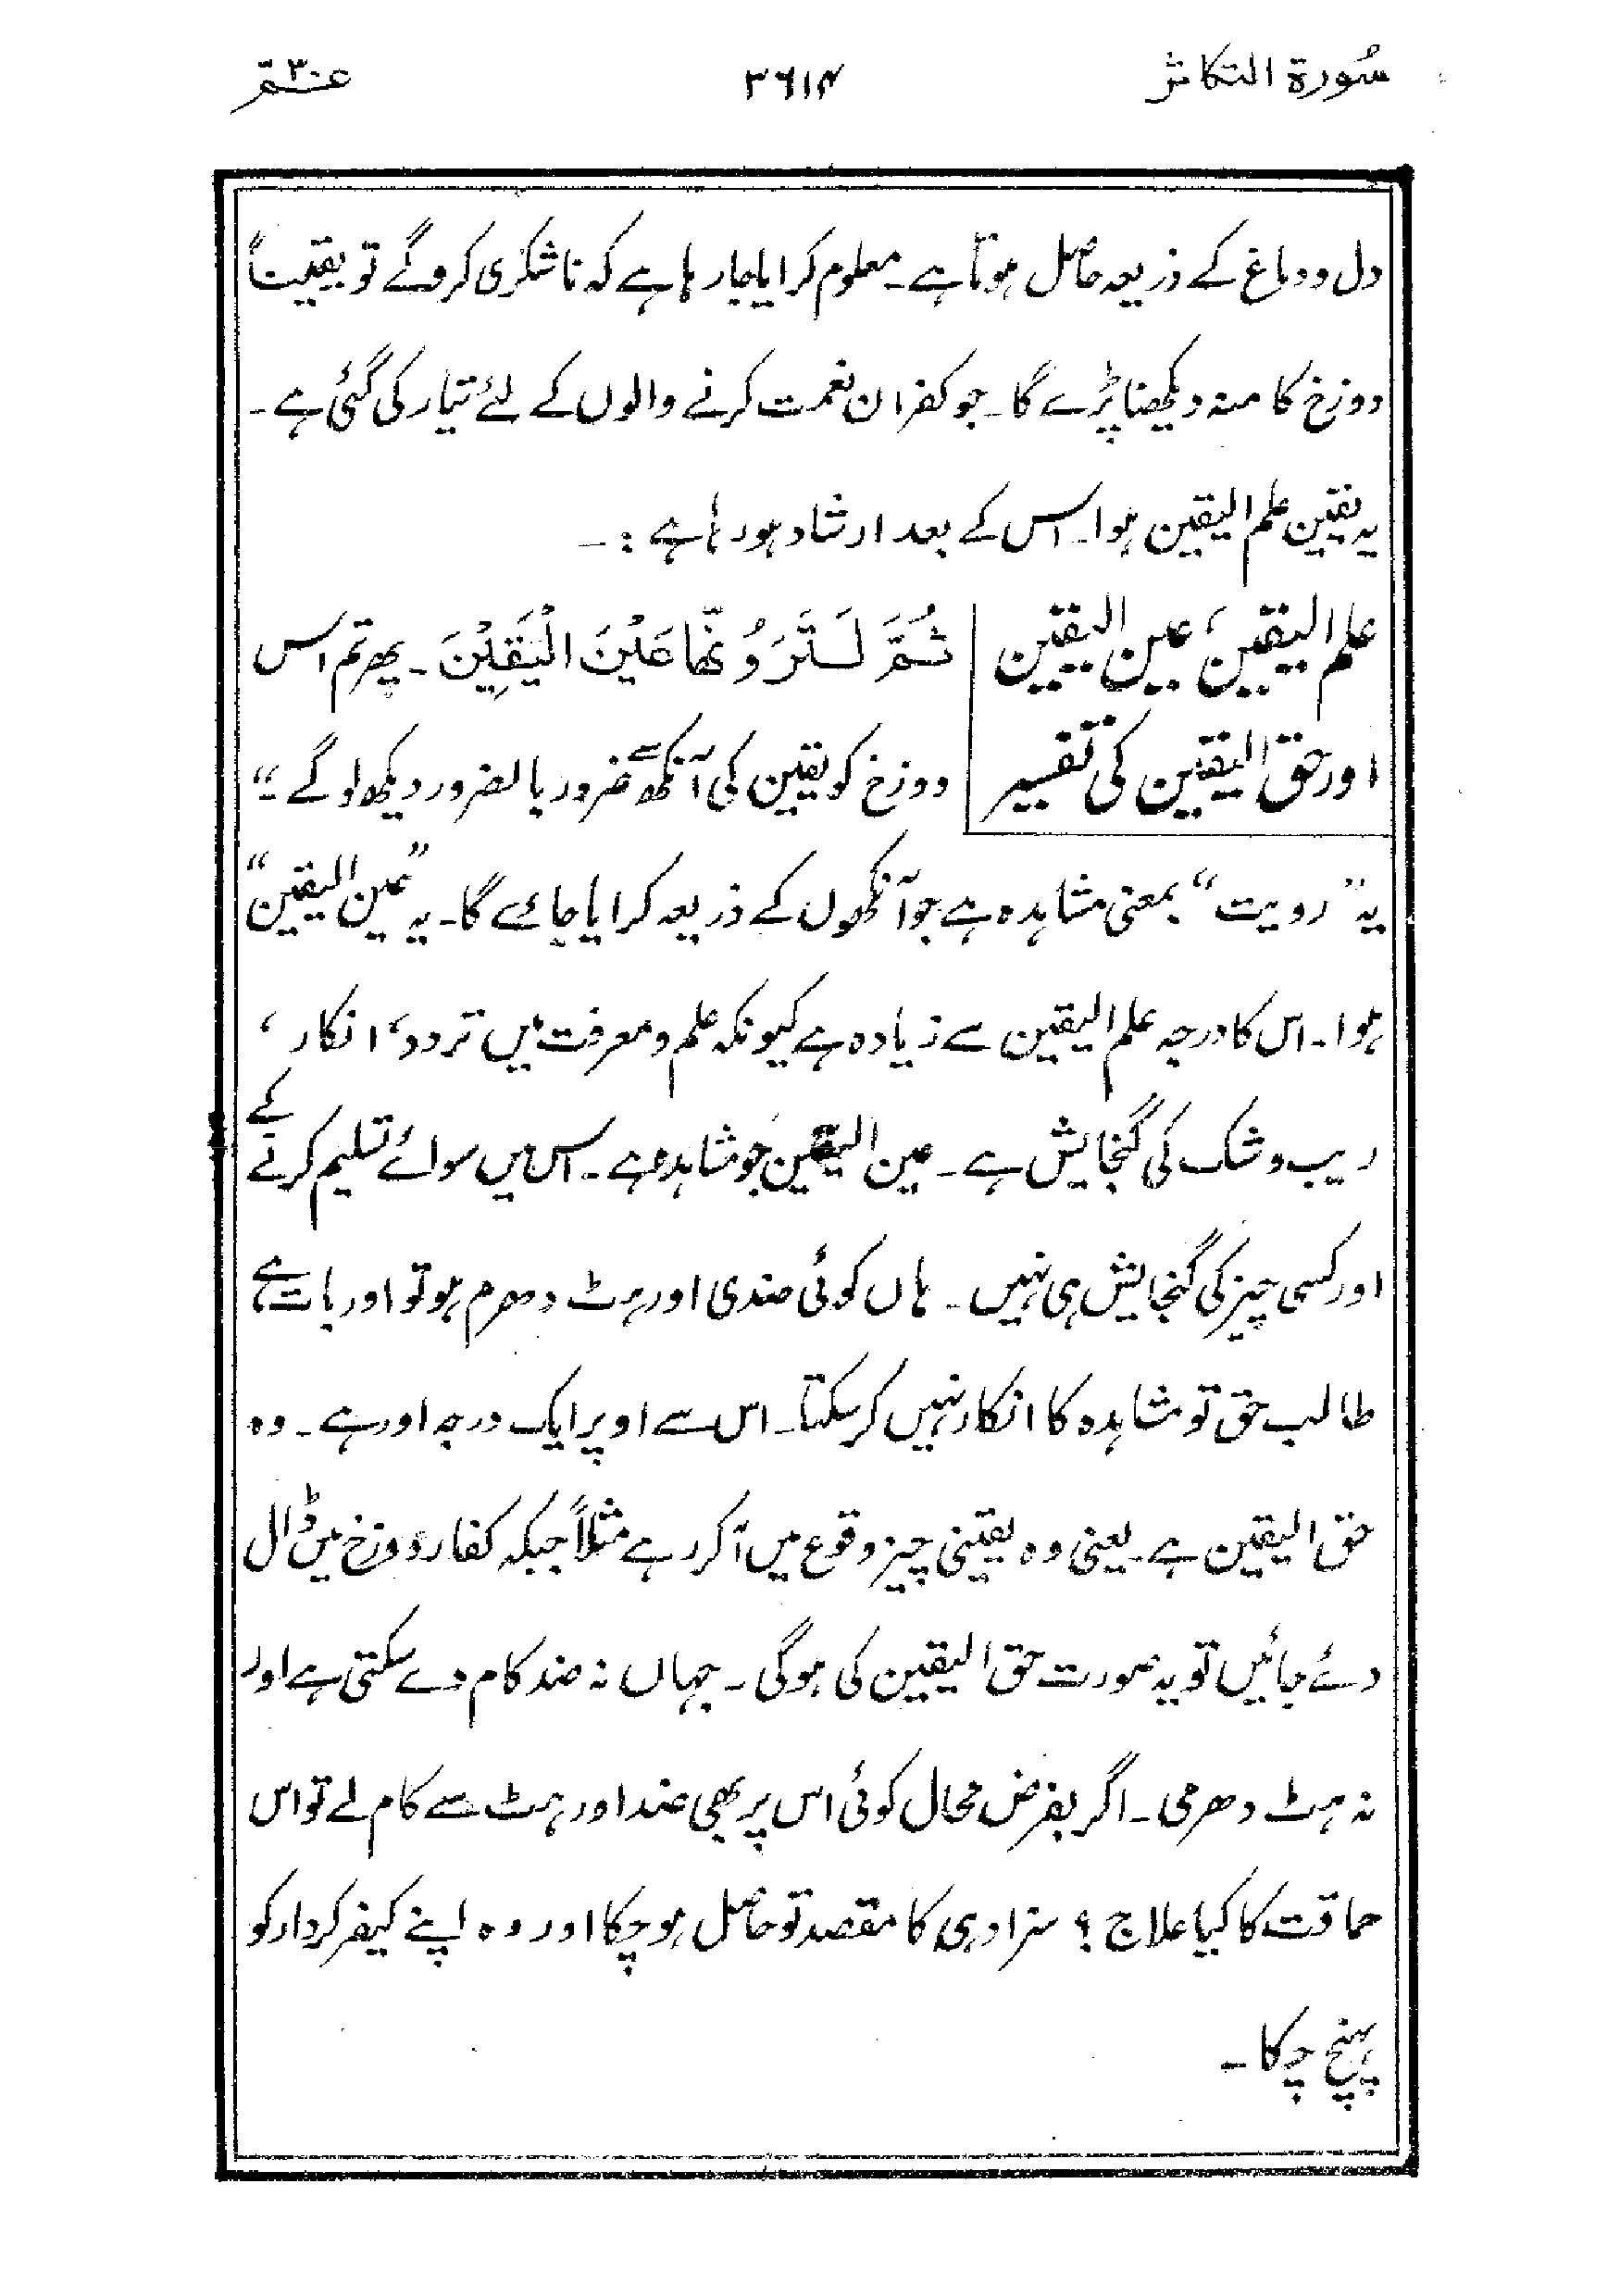 سُورة التكاثر ۳۶۱۴ عمّ ۳۰
دل ودماغ کے ذریعہ حاصل ہوتا ہے۔ معلوم کرایا جا رہا ہے کہ ناشکری کروگے تو یقیناً
دوزخ کا منہ دیکھنا پڑے گا۔ جو کفران نعمت کرنے والوں کے لئے تیار کی گئی ہے۔
یہ یقین علم الیقین ہوا۔ اس کے بعد ارشاد ہو رہا ہے :۔
علم الیقین، عین الیقین
اور حق الیقین کی تفسیر
ثُمَّ لَتَرَوُنَّھَا عَیْنَ الْیَقِیْنَ۔ پھر تم اس
دوزخ کو یقین کی آنکھ سے ضرور بالضرور دیکھ لوگے۔“
یہ ”رویت“ بمعنی مشاہدہ ہے جو آنکھوں کے ذریعہ کرایا جائے گا۔ یہ ”عین الیقین“
ہوا۔ اس کا درجہ علم الیقین سے زیادہ ہے کیونکہ علم و معرفت میں تردد، انکار،
ریب و شک کی گنجایش ہے۔ عین الیقین جو مشاہدہ ہے۔ اس میں سوائے تسلیم کرنے کے
اور کسی چیز کی گنجایش ہی نہیں۔ ہاں کوئی ضدی اور ہٹ دھرم ہو تو اور بات ہے
طالب حق تو مشاہدہ کا انکار نہیں کر سکتا۔ اس سے اوپر ایک درجہ اور ہے۔ وہ
حق الیقین ہے۔ یعنی وہ یقینی چیز وقوع میں آ کر رہے مثلاً جبکہ کفار دوزخ میں ڈال
دئے جائیں تو یہ صورت حق الیقین کی ہوگی۔ جہاں نہ ضد کام دے سکتی ہے اور
نہ ہٹ دھرمی۔ اگر بفرض محال کوئی اس پر بھی ضد اور ہٹ سے کام لے تو اس
حماقت کا کیا علاج ؟ سزا دہی کا مقصد تو حاصل ہو چکا اور وہ اپنے کیفر کردار کو
پہنچ چکا۔